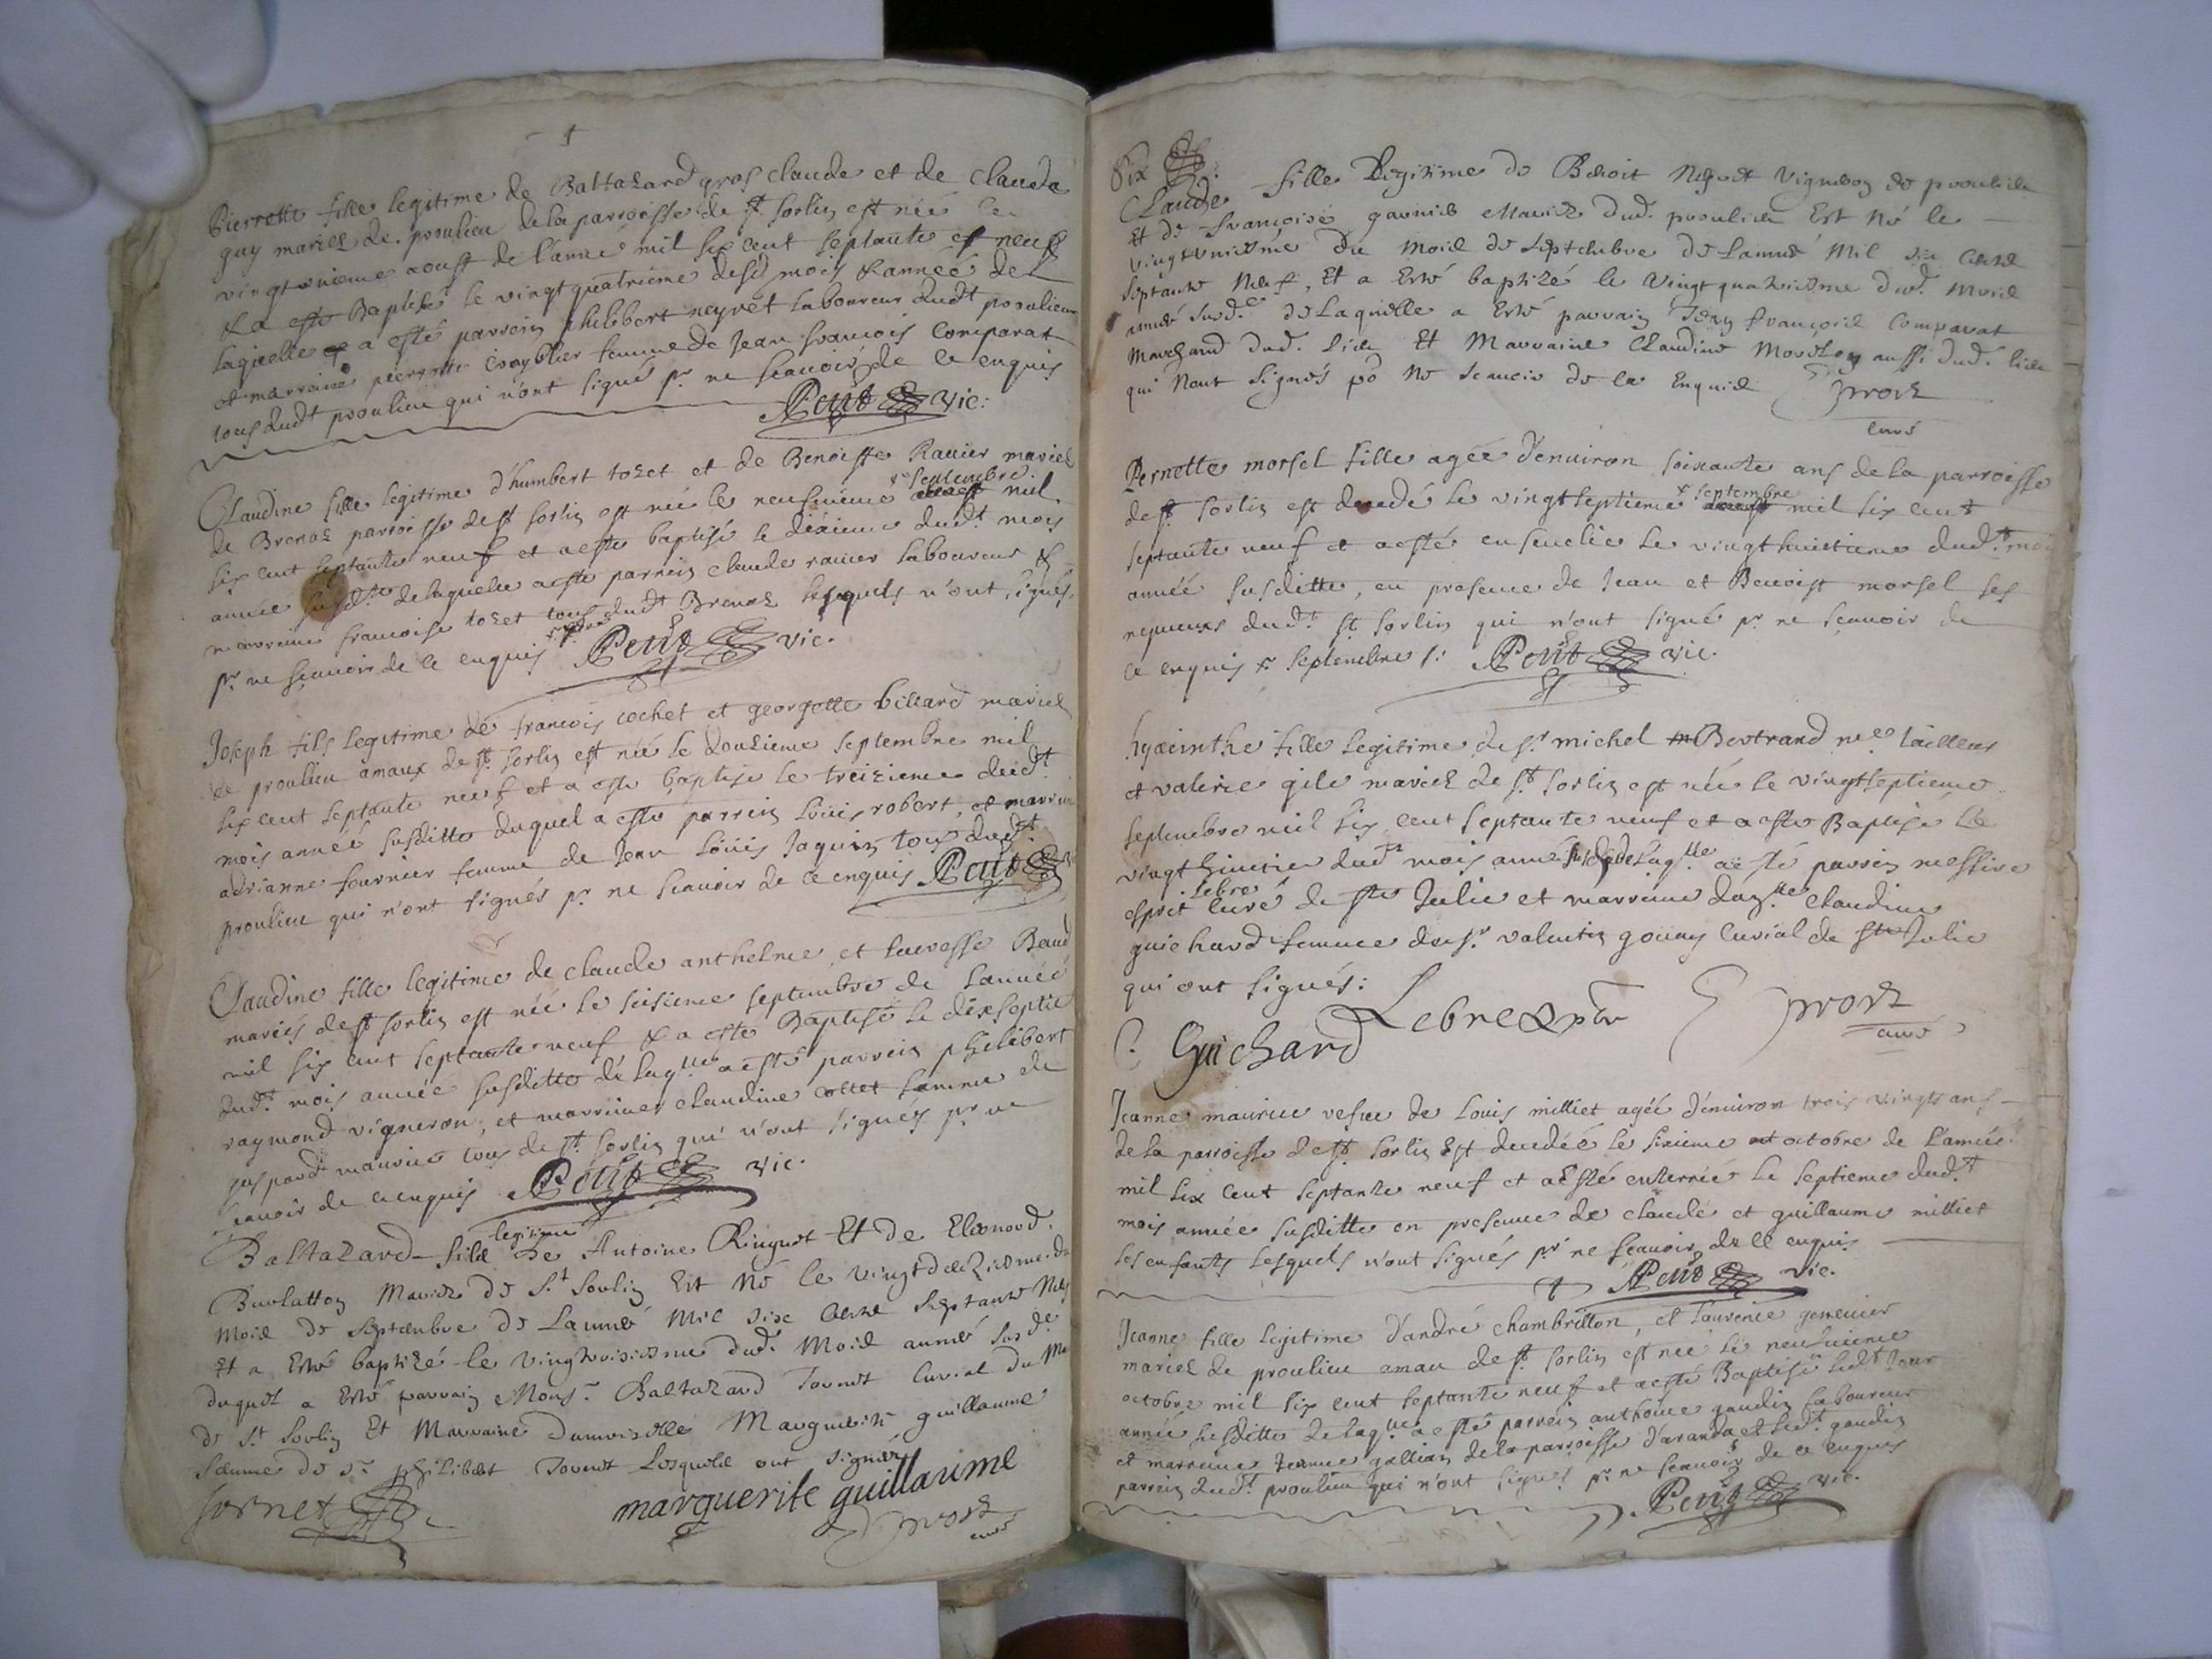 Pierrette fille legitime de Baltazard gros claude et de clauda
guy mariez de proulieu de la parroisse de st sorlin est née le
vingtunieme aoust de l'année mil six cent septante et neuf
& a esté Baptisé le vingtquatrieme desd mois & année de
laquelle a esté parrein philibert neyret laboureur dudt proulieu
et marreine pierrette femme de Jean francois Comparat
tous dudt proulieu qui n'ont signés pr ne scauoir de ce enquis
Petit vic:
Claudine fille legitime d'humbert tozet et de Benoiste Rauier mariez
de Brenaz parroisse de st sorlin est née le neufuieme septembre mil
six cent septante neuf et a esté baptisé le dixieme dudt mois
année susdte de laquelle a esté parrein claude rauier laboureur &
marreine francoise tozet tous dudt Brenaz lesquels n'ont signés
pr ne scauoir de ce enquis Petit vic.
Joseph fils legitime de francois cochet et georgette billard mariez
de proulieu amaux de st sorlin est né le douzieme septembre mil
six cent septante neuf et a esté baptisé le treizieme dudt
mois année susditte duquel a esté parrein Louis robert, et marreine
adrianne fournier femme de Jean Louis Jaquin tous dudt
proulieu qui n'ont signés pr ne scauoir de ce enquis Petit
Claudine fille legitime de claude anthelme, et lucresse Baud
mariés de st sorlin est née le seisieme septembre de l'année
mil six cent septante neuf & a esté Baptisé le dixseptie
dudt mois année susditte de laqlle a esté parrein philibert
raymond vigneron, et marreine claudine collet femme de
gaspard maurice tous de st sorlin qui n'ont signés pr ne
scauoir de ce enquis Petit vic.
legitime
Baltazard fils de Antoine Ringuet Et de Eleonord
Mariez de St Sorlin Est Né le vingtdeuziesme du
Mois de Septembre de Lanné Mil Six Cent Septante Neuf
Et a Esté baptizé le vingtroisiesme dud. Mois année susde
duquel a Esté parrain Monsr Baltazard Jornet Curial du
de St Sorlin Et Marraine Damoiselle Marguerite guillaume
femme de Sr philibert Jornet Lesquels ont signéz
Jornet marguerite guillaume
prost
curé
Six
Claude fille Legitime de Benoit Neyret Vigneron de proulieu
Et de françoise garnier Mariez dud. proulieu Est Né le
vingtuniesme du Mois de Septembre de Lanneé Mil Six Cent
Septante Neuf, Et a Esté baptizé le Vingtquatriesme dud. Mois
année susde de Laquelle a Esté parrain Jean françois Comparat
Marchand dud. Lieu Et Marraine Claudine aussi dud. lieu
qui Nont signés po Ne scauoir de ce Enquis prost
curé
Pernette morsel fille agée d'enuiron soixante ans de la parroisse
de st sorlin est decedé le vingtseptieme septembre mil six cent
septante neuf et a esté enseuelie le vingthuictieme dudt mois
année susditte, en presence de Jean et Benoist morsel ses
nepueux dudt st sorlin qui n'ont signé pr ne scauoir de
ce enquis septembre s: Petit vic.
hyacinthe fille legitime de sr michel Bertrand me tailleur
et valerie gile mariez de st sorlin est née le vingtseptieme
septembre mil six cent septante neuf et a esté Baptisé le
vingthuictie dudt mois année susdde laqlle a esté parrein messire
esprit Lebre curé de ste Julie et marreine damlle claudine
guichard femme du sr valentin gouay Curial de ste Julie
qui ont signés:
C. Guichard Lebre prost
curé
Jeanne maurice vefue de Louis milliet agée d'enuiron trois vingts ans
de la parroisse de st sorlin Est decedée le sixieme octobre de l'année
mil six cent septante neuf et a Esté enterrée le septieme dudt
mois année susditte en presence de claude et guillaume milliet
ses enfants lesquels n'ont signés pr ne scauoir de ce enquis
Petit vic.
Jeanne fille legitime d'andré chambrillon, et Laurence
mariez de proulieu amau de st sorlin est née le neufuieme
octobre mil six cent septante neuf et a esté Baptisé ledt Jour
année susditte de laqlle a esté parrein anthoine gaudin laboureur
et marreine Jeanne gallian de la parroisse d'aranda et ledt gaudin
parrein dudt proulieu qui n'ont signés pr ne scauoir de ce enquis
Petit vic.